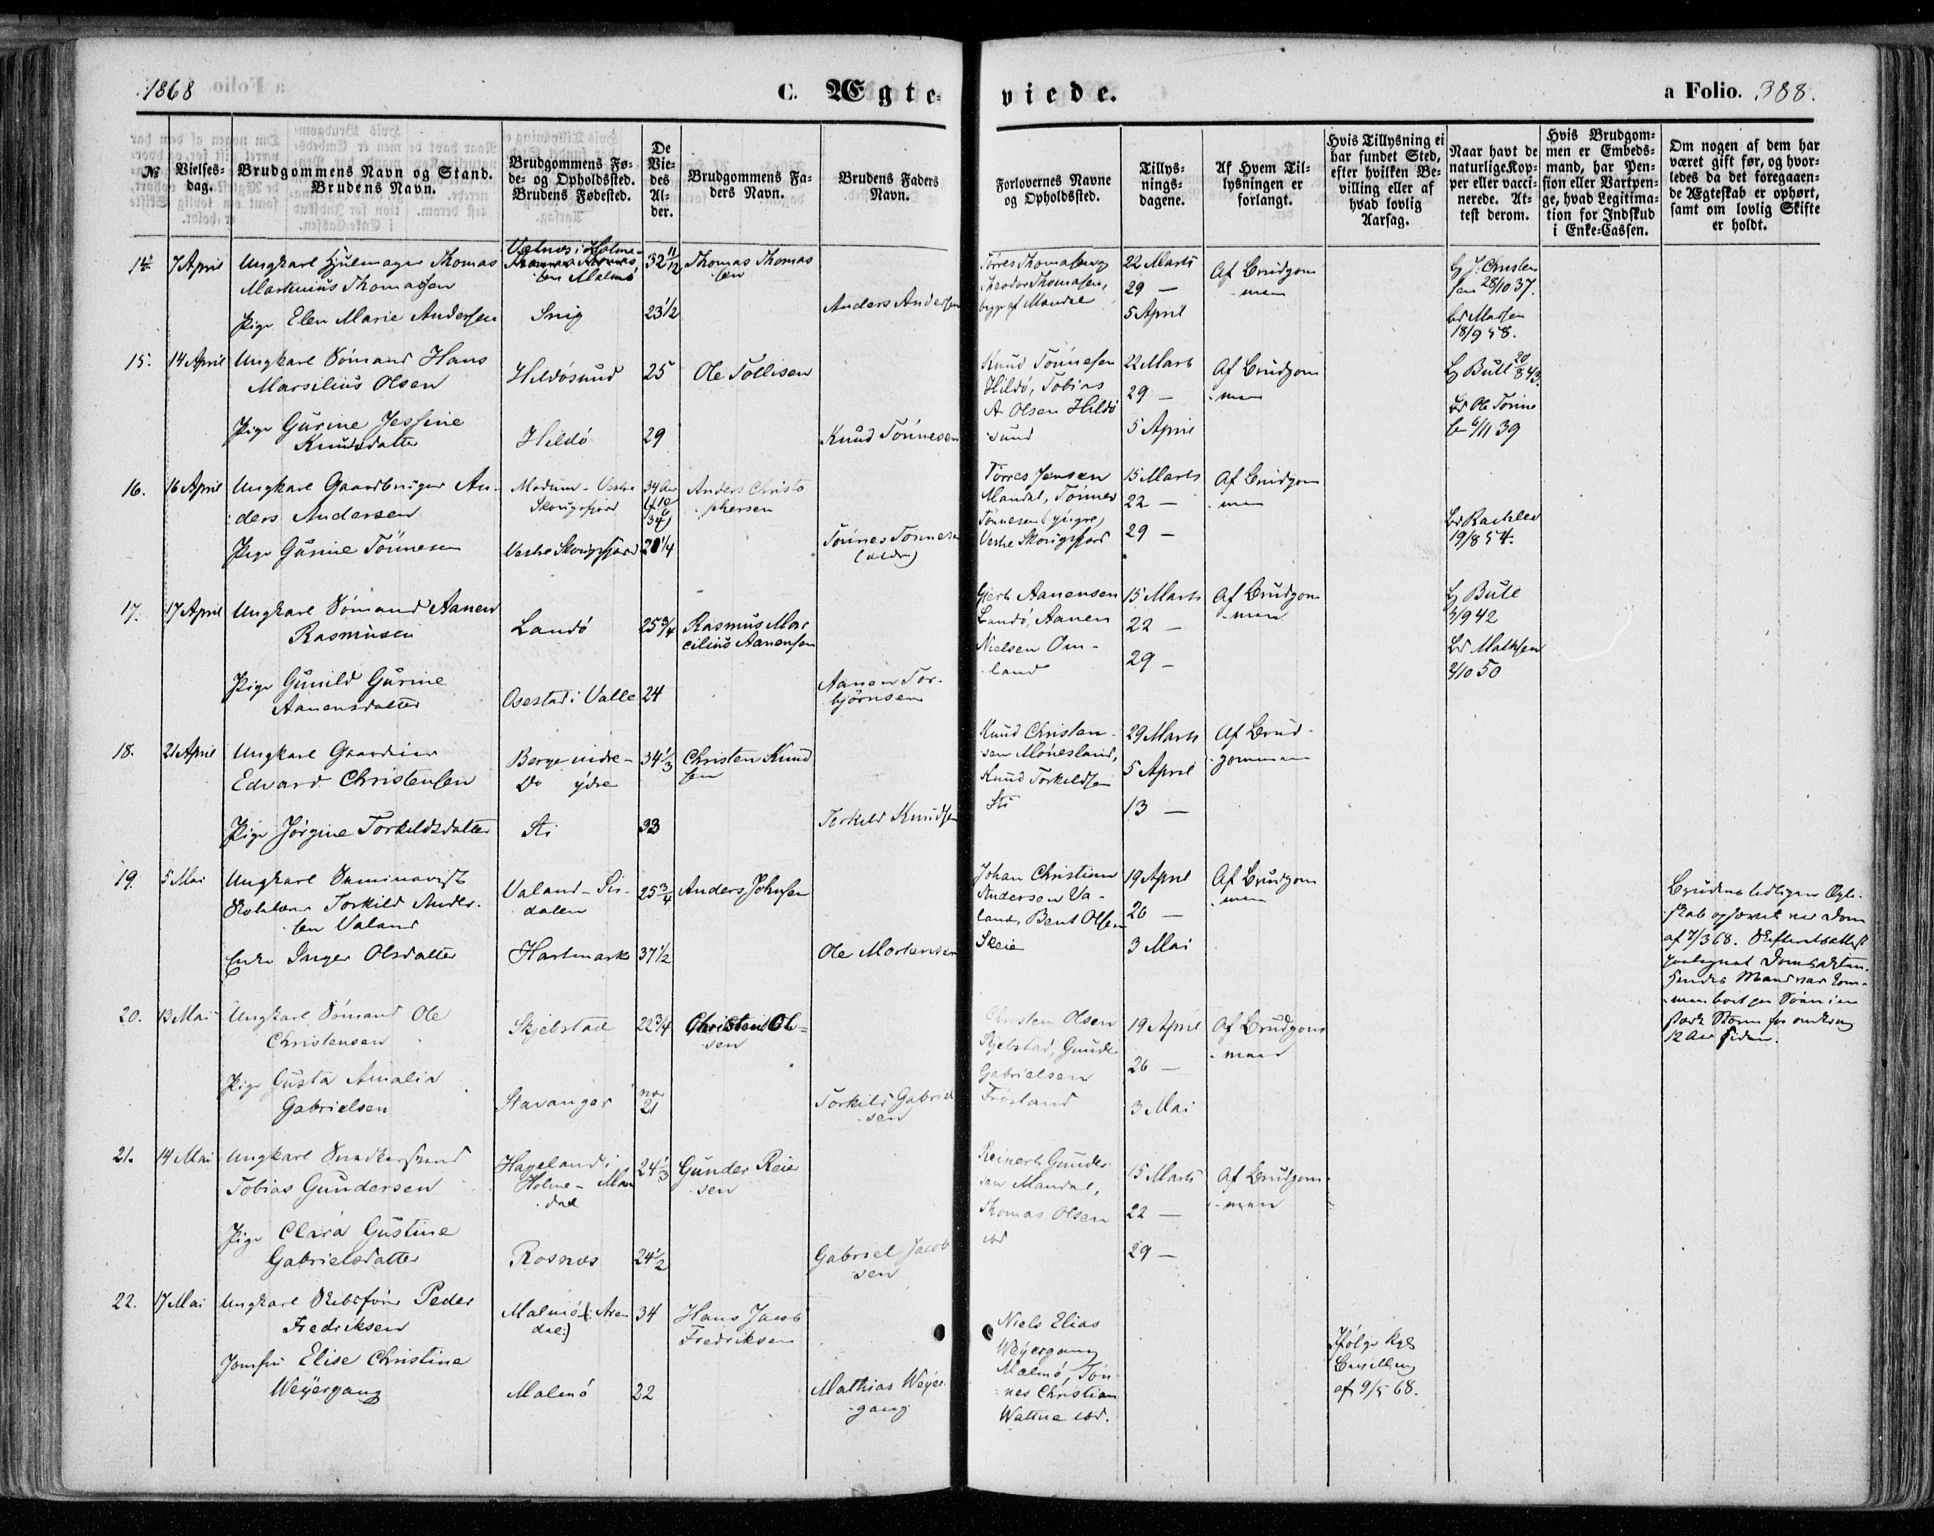 1868
C. Ægte-
viede.
a Folio. 388.
№
Vielses-
dag.
Brudgommens Navn og Stand.
Brudens Navn.
Brudgommens Fø-
de- og Opholdssted.
Brudens Fødested.
De
Vie-
des
Al-
der.
Brudgommens Fa-
ders Navn.
Brudens Faders
Navn.
Forlovernes Navne
og Opholdssted.
Tillys-
nings-
dagene.
Af Hvem Til-
lysningen er
forlangt.
Hvis Tillysning ei
har fundet Sted,
efter hvilken Be-
villing eller af
hvad lovlig
Aarsag.
Naar havt de
naturlige Kop-
per eller vacci-
nerede. At-
test derom.
Hvis Brudgom-
men er Embeds-
mand, har Pen-
sion eller Vartpen-
ge, hvad Legitima-
tion for Indskud
i Enke-Cassen.
Om nogen af dem har
været gift før, og hvor-
ledes da det foregaaen-
de Ægteskab er ophørt,
samt om lovlig Skifte
er holdt.
14
7 April
Ungkarl Hjulmager Thomas
Martinius Thomassen
Holme-
Malmö
32 11/12
Thomas Thomas
sen
Torres Thomasen og
Theodor Thomasen,
begge af Mandal
22 Marts
29 —
5 April
Af Brudgom
men
Bg J. Christen
sen 28/10 37.
Pige Elen Marie Andersen
23 1/2
Anders Andersen
Br Madsen
18/9 58.
15.
14 April
Ungkarl Sömand Hans
Marselius Olsen
Hildösund
25
Ole Tollisen
Knud Tönnesen
Hildö, Tobias
A. Olsen Hildö
sund
22 Marts
29 —
5 April
Af Brudgom
men
Bg Bull 20/8 43.
Pige Gurine Jessine
Knudsdatter
Hildö
29
Knud Tönnesen
Br Ole Tönne
sen 6/11 39
16.
16 April
Ungkarl Gaardbruger An-
ders Andersen
Vestre
Skougsfjord
34
Anders Christo
phersen
Torres Jensen
Mandal, Tönnes
Tönnesen (yngre)
Vestre Skougsfjord
15 Marts
22 —
29 —
Af Brudgom
men
Pige Gurine Tönnesen
Vestre Skougsfjord
20 1/4
Tönnes Tönnesen
(ældre)
19/8 54.
17.
17 April
Ungkarl Sömand Aanen
Rasmusen
Landö
25 3/4
Rasmus Mar
cilius Aanensen
Gjert Aanensen
Landö, Aanen
Nielsen Om-
land
15 Marts
22 —
29 —
Af Brudgom
men
Bg Bull
3/9 42
Pige Gunild Gurine
Aanensdatter
Osestad i Valle
24
Aanen Tor-
björnsen
Br Mathsen
2/10 50
18.
21 April
Ungkarl Gaardeier
Edvard Christensen
Berge indre -
Do ydre
34 1/3
Christen Knud
sen
Knud Christen-
sen Mönesland,
Knud Torkildsen
Sti
29 Marts
5 April
13 —
Af Brud-
gommen
Pige Jörgine Torkildsdatter
Sti
33
Torkild Knudsen
19.
5 Mai
Ungkarl Seminarist
Skolelærer Torkild Ander-
sen Valand
Valand - Sir-
dalen
25 3/4
Anders Johnsen
Johan Christian
Andersen Va-
land, Bent Olsen
Skeie
19 April
26 —
3 Mai
Af Brudgom
men
Enke Inger Olsdatter
Hartmark
37 1/2
Ole Mortensen
Brudens tidligere Ægte-
skab ophævet ved Dom
af 7/3 68.
Mand var kom-
men bort paa Söen i en
stærk Storm for omkring
12 Aar siden.
20.
13 Mai
Ungkarl Sömand Ole
Christensen
Skjebstad
22 3/4
Christen Ol-
sen
Christen Olsen
Skjebstad, Gunde
Gabrielsen
Frösland
19 April
26 —
3 Mai
Af Brudgom
men
Pige Gusta Amalia
Gabrielsen
Stavanger
21
Torkild Gabriel
sen
21.
14 Mai
Ungkarl Snedkersvend
Tobias Gundersen
Hageland i
Holme - Man
dal
24 1/3
Gunder Reier
sen
Reinert Gunder
sen Mandal,
Thomas Olsen
ibd
15 Marts
22 —
29 —
Af Brudgom
men
Pige Clara Gustine
Gabrielsdatter
Rosnæs
24 1/2
Gabriel Jacob
sen
22.
17 Mai
Ungkarl Skibsförer Peder
Fredriksen
Malmö (: Aren
dal:)
34
Hans Jacob
Fredriksen
Niels Elias
Weyergang
Malmö, Tön-
nes Christian
Wattne ibd.
Ifölge kgl.
Bevilling
af 9/5 68.
Jomfru Elise Christine
Weyergang
Malmö
22
Mathias Weyer-
gang